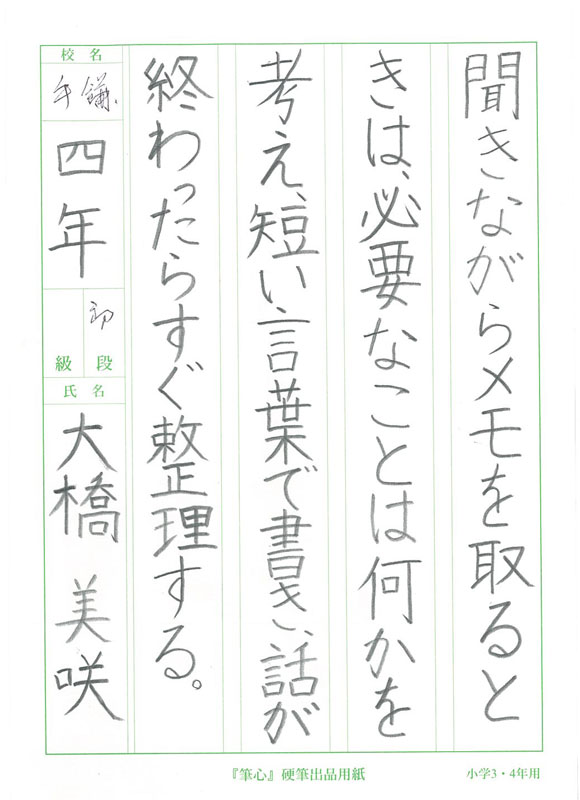 聞きながらメモを取ると
きは、必要なことは何かを
考え、短い言葉で書き、話が
終わったらすぐ整理する。
校名
鎌手
四年
初
段
級
氏名
大橋 美咲
『筆心』硬筆出品用紙
小学3・4年用